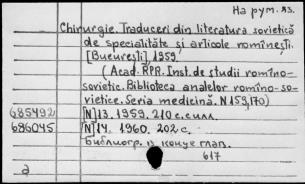 На рум. яз.
Chirurgie. Traduceri din literatura sovietică
de specialitate și articole romînești.
[București], 1959
(Acad. RPR. Inst. de studii romîno-
sovietic. Biblioteca analelor romîno-so-
vietice. Seria medicină. N 159, 170)
685492 [N] 13. 1959. 210 с. с илл.
686045 [N] 14. 1960. 202 с.
Библиогр. в конце глав.
617
а